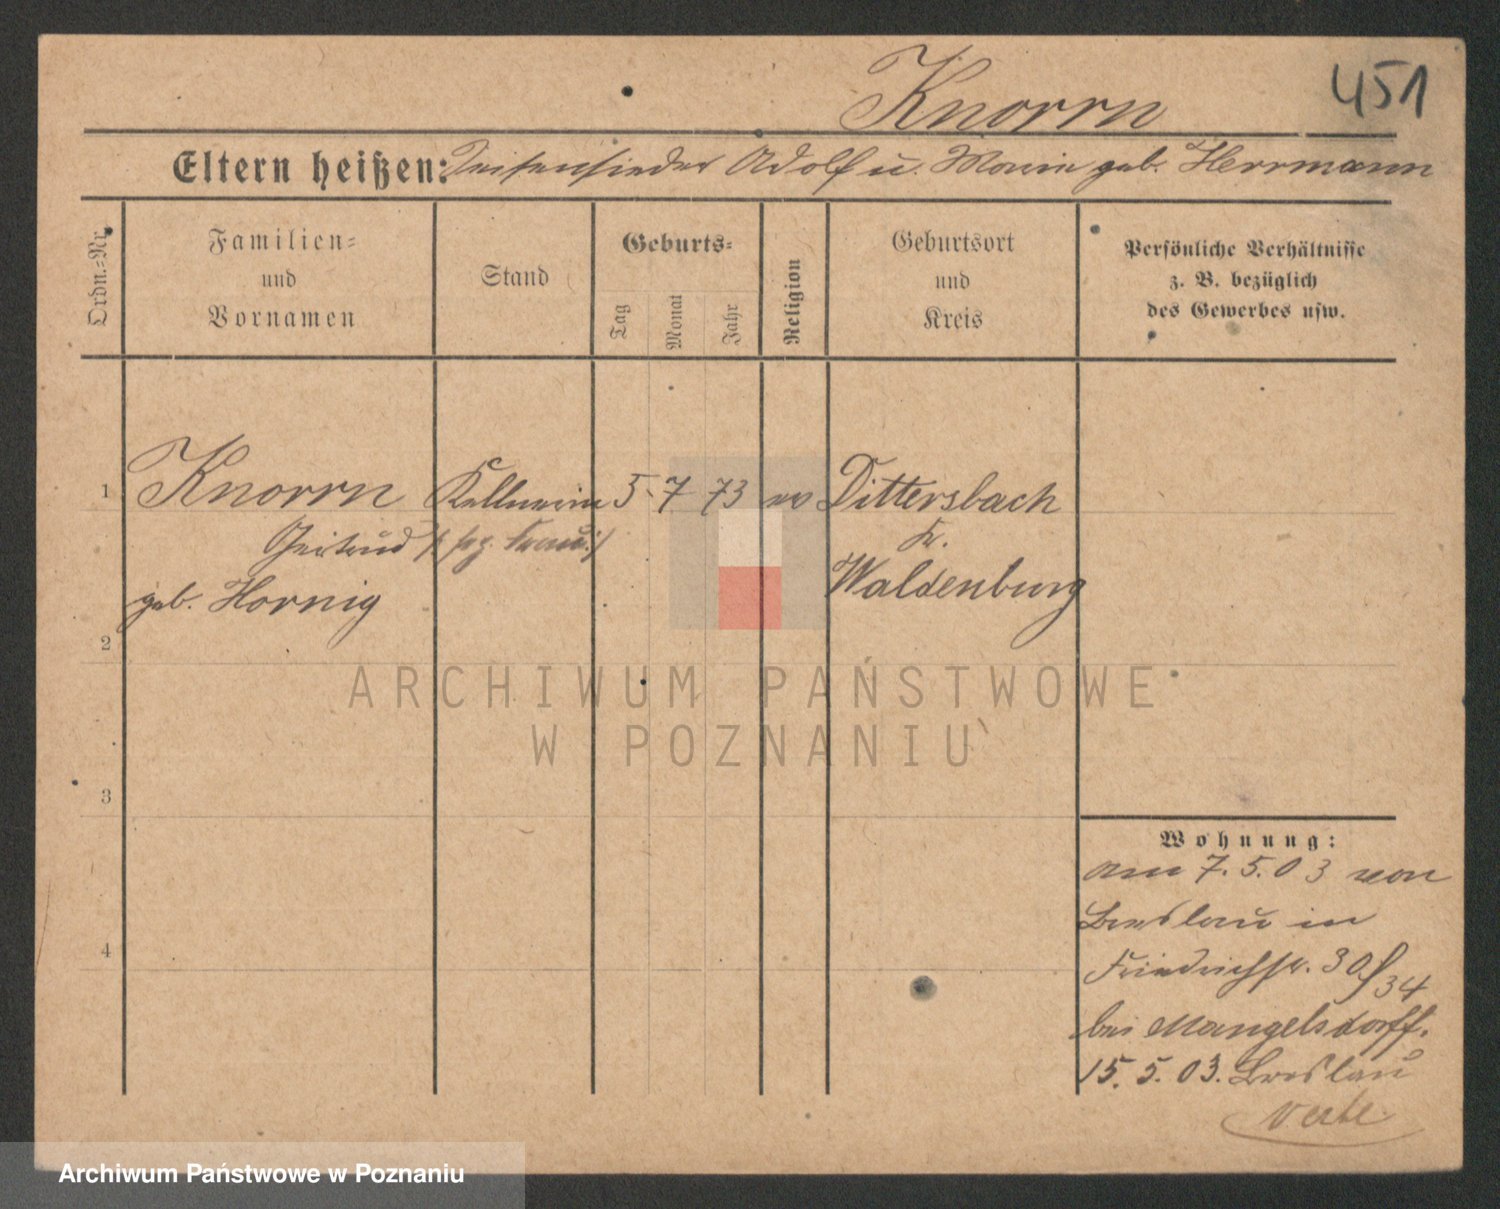 451
Knorrn
Eltern heißen: Seifensieder Adolf u. Marie geb. Herrmann
Ordn.-Nr.
Familien-
und
Vornamen
Stand
Geburts-
Tag
Monat
Jahr
Religion
Geburtsort
und
Kreis
Persönliche Verhältnisse
z. B. bezüglich
des Gewerbes usw.
1 Knorrn Kellnerin 5. 7 73 ev Dittersbach
Gertrud Kr.
geb. Hornig Waldenburg
2
3
4
ARCHIWUM PAŃSTWOWE
W POZNANIU
Wohnung:
am 7. 5. 03 von
Breslau in
Friedrichstr. 30/34
bei Mangelsdorff.
15. 5. 03. Breslau
Archiwum Państwowe w Poznaniu